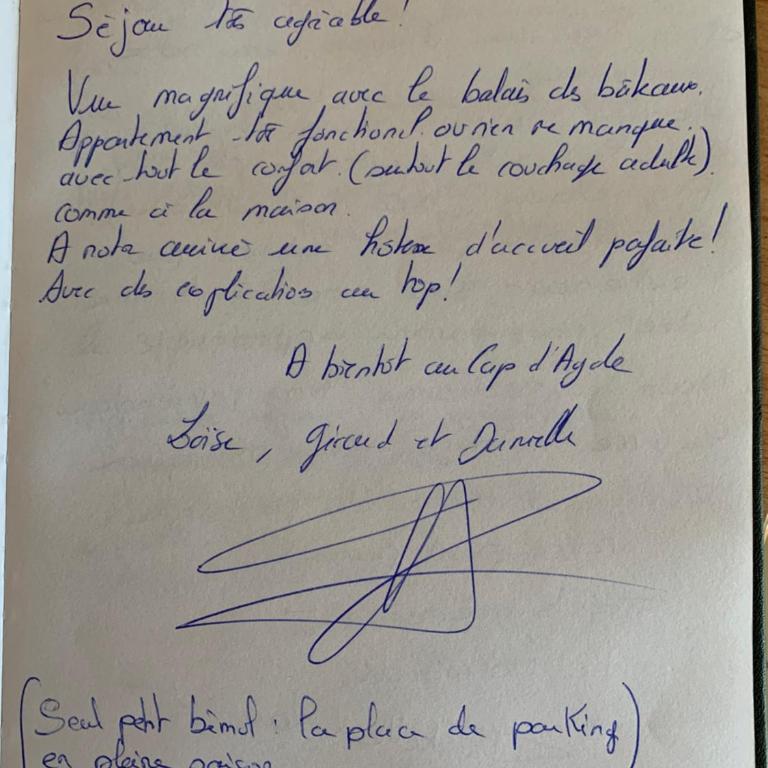 Séjour très agréable!
Vue magnifique avec le balais des bâteaux.
Appartement très fonctionel. où rien ne manque.
avec tout le confort. (surtout le couchage adulte).
comme à la maison.
A noter aussi une hotesse d'accueil parfaite!
Avec des explications au top!
A bientôt au Cap d'Agde
Loïse, Giraud et Danielle
(Seul petit bémol : la place de parking)
en pleine saison